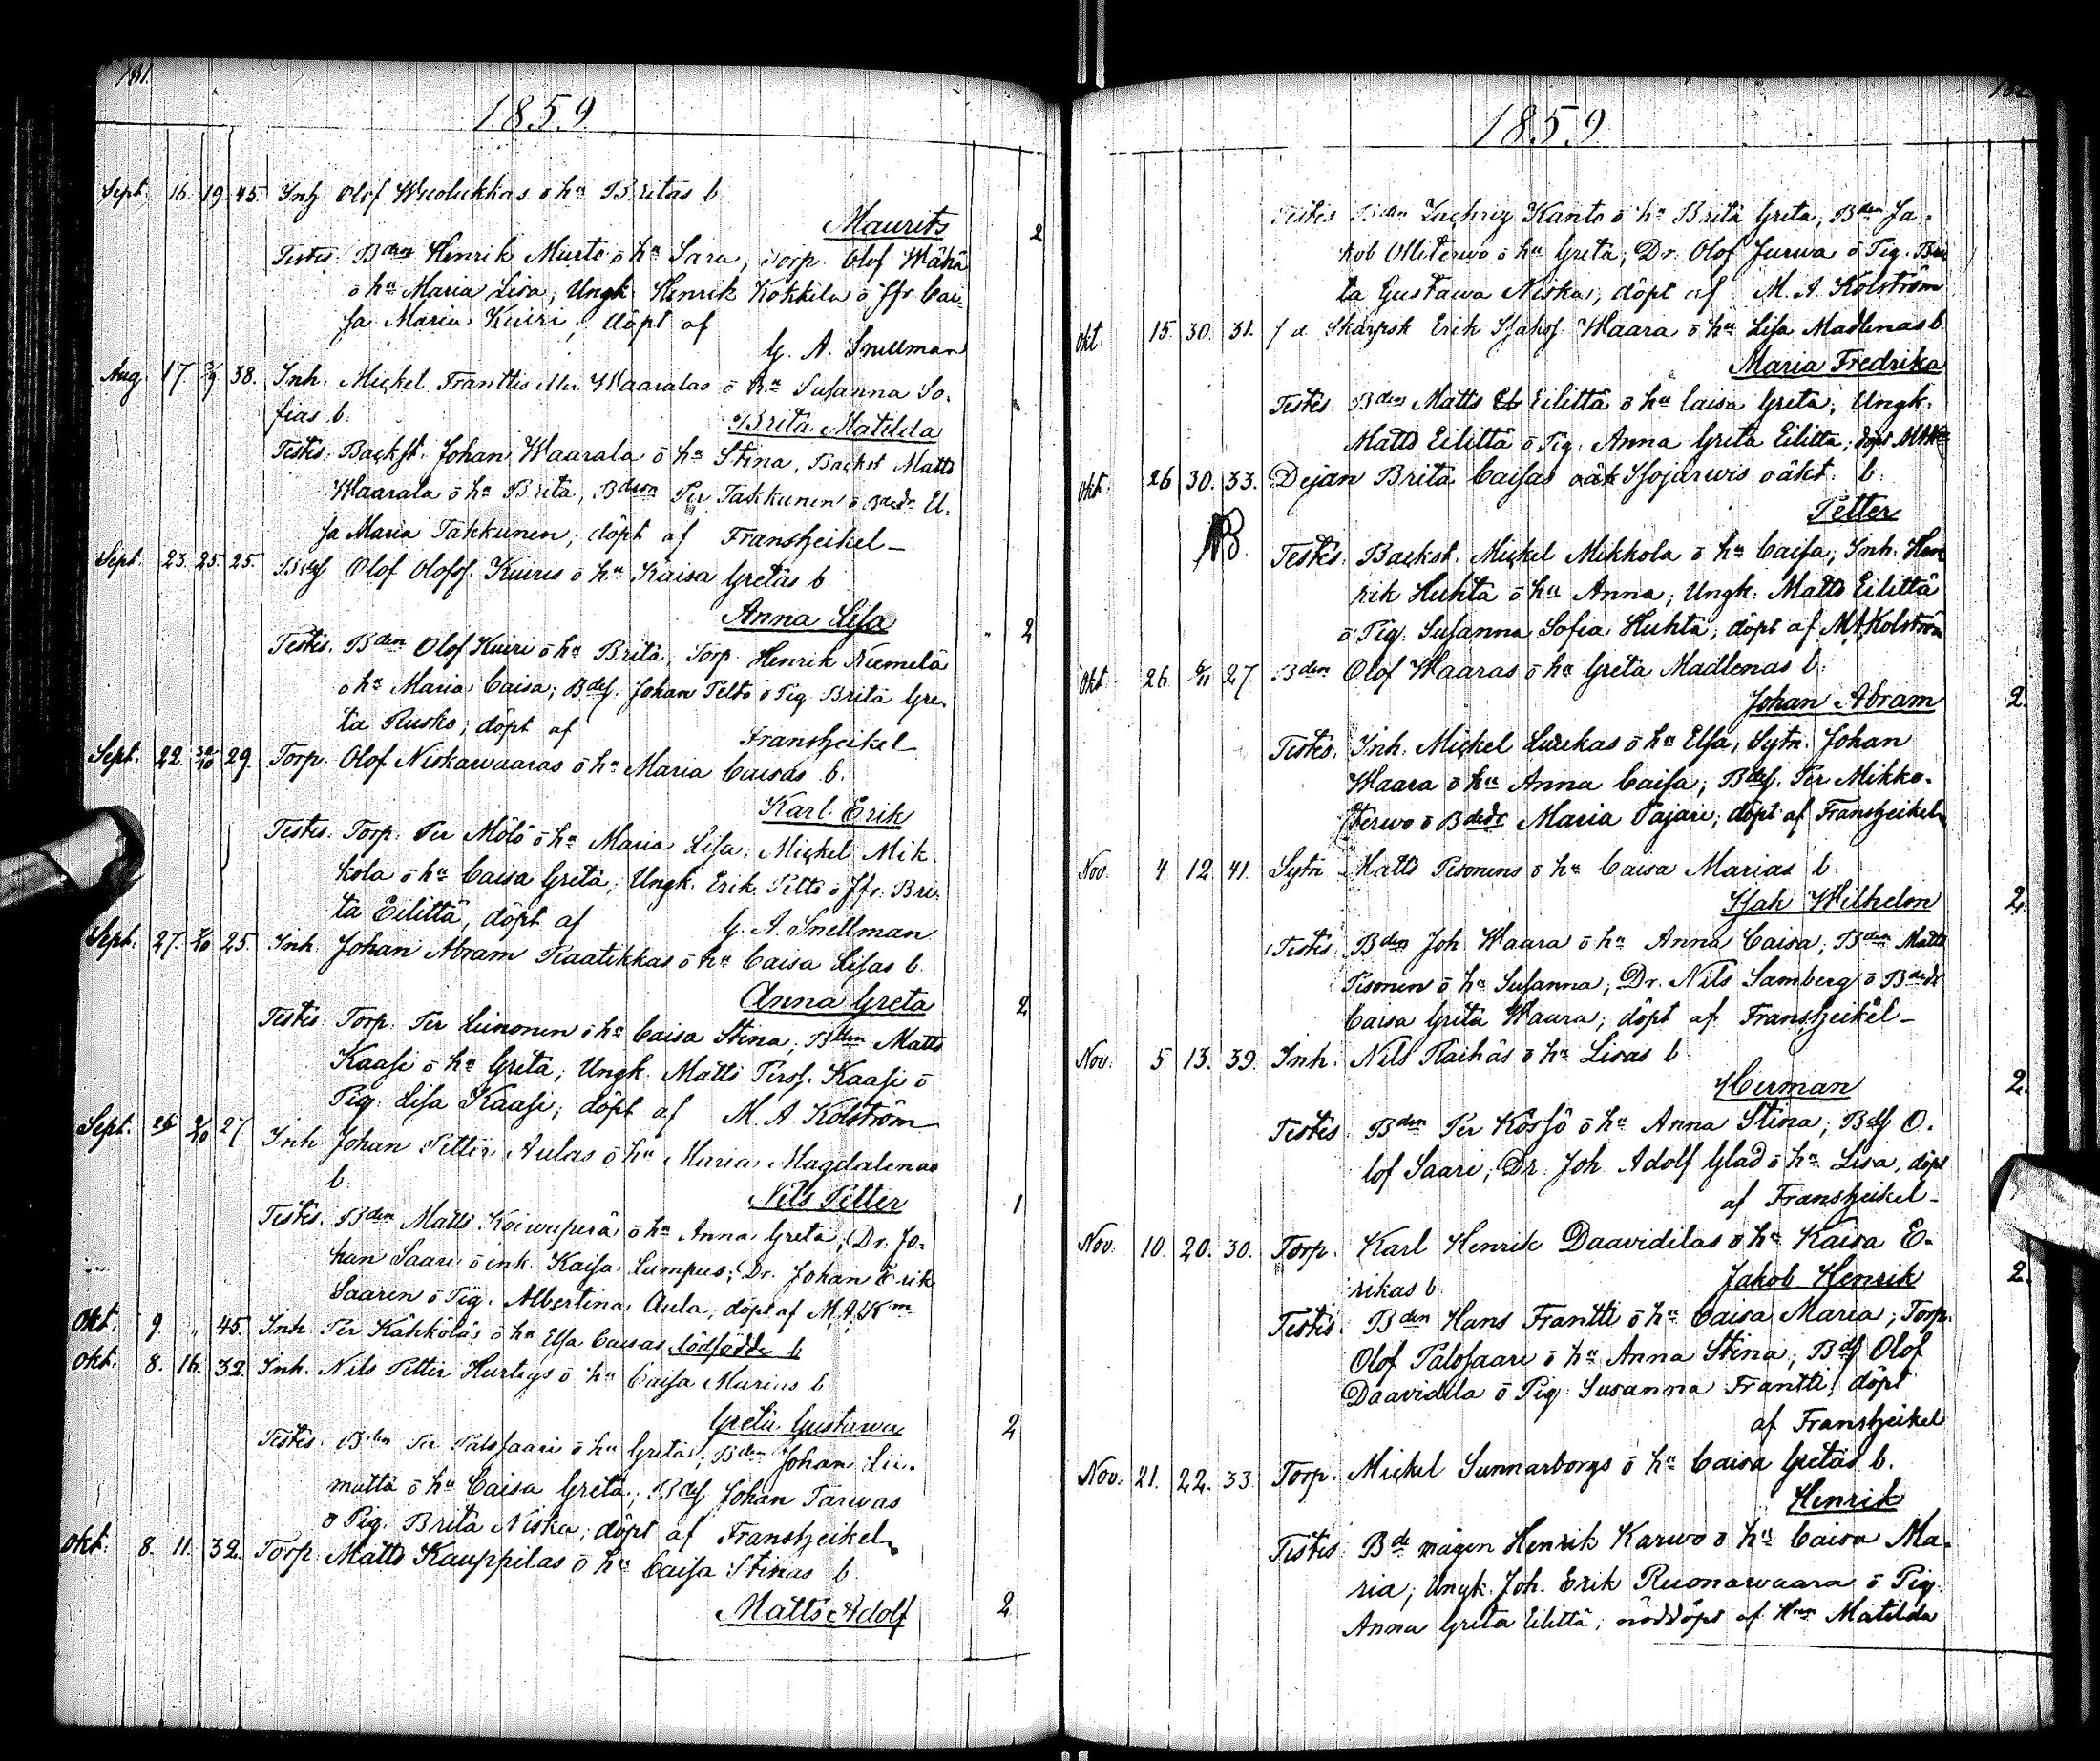 181.
1859
Sept. 16. 19. 45. Inh Olof Wuolukkas o hu Britas b
Maurits 2
Testis. Bden Henrik Mursto o hu Sara, Torp. Olof Wähä
o hu Maria Lisa, Ungk. Henrik Kokkila o Jfr Cai-
sa Maria Kuiri, döpt af
G. A. Snellman
Aug. 17. 38. Inh. Mickel Franttis eller Waaralas o hu Susanna So-
fias b. Brita Matilda
Testis. Backst. Johan Waarala o hu Stina, Backst Matts
Waarala o hu Brita, Bdson Per Takkunen o Bdedr El-
sa Maria Takkunen, döpt af Franszeikel
Sept. 23. 25. 25. Bdes Olof Olofs. Kuiris o hu Kaisa Gretas b
Anna Lisa 2
Testis. Bden Olof Kuiri o hu Brita, Torp. Henrik Niemelä
o hu Maria Caisa; Bdes. Johan Pelto o Pig Brita Gre-
ta Rusko, döpt af Franszeikel
Sept. 22. 30/10 29. Torp. Olof Niskawaaras o hu Maria Caisas b.
Karl Erik
Testis. Torp. Per Mölö o hu Maria Lisa, Mickel Mik-
kola o hu Caisa Greta, Ungk. Erik Pelto o Jfr. Bri-
ta Eilittä, döpt af G. A. Snellman
Sept. 27. 2/10 25. Inh Johan Abram Raatikkas o hu Caisa Lisas b.
Anna Greta 2
Testis. Torp. Per Liinonen o hu Caisa Stina, Bden Matts
Kaasi o hu Greta, Ungk. Matts Persf. Kaasi o
Pig. Lisa Kaasi, döpt af M. A Kolström
Sept. 26 2/10 27 Inh Johan Petter Aulas o hu Maria Magdalenas
b. Nils Petter 1
Testis. Bden Matts Koiwuperä o hu Anna Greta, Dr. Jo-
han Saari o enk. Kaisa Lumpus, Dr. Johan Erik
Saarin o Pig. Albertina Aula, döpt af M. A. Km
Okt. 9 " 45. Inh Per Kähkölös o hu Elsa Caisas dödfödde b
Okt. 8. 16. 32. Inh. Nils Petter Hurtigs o hu Caisa Marias b
Greta Gustawa 2
Testis. Bden Per Palosaari o hu Greta, Bden Johan Lii-
matta o hu Caisa Greta, Bdes Johan Tarwas
o Pig. Brita Niska, döpt af Franszeikel
Okt. 8. 11. 32. Torp. Matts Kauppilas o hu Caisa Stinas b
Matts Adolf 2
1859
Testis Bden Zachriz Kanto o hu Brita Greta, Bden Ja-
kob Olliterwo o hu Greta, Dr. Olof Jurwa o Pig. Bri
ta Gustawa Niska, döpt af M. A. Kolström
Okt. 15. 30. 31. f d Skarpsk Erik Isaksf Waara o hu Lisa Madlenas b
Maria Fredrika
Testis. Bden Matts Eilittä o hu Caisa Greta, Ungk.
Matts Eilittä o Pig. Anna Greta Eilitta, döpt MAK
Okt. 26 30. 33. Dejan Brita Caisas oäk Isojärwis oäkt. b.
Petter
NB.
Testis. Backst. Mickel Mikkola o hu Caisa, Inh. Hen
rik Huhta o hu Anna, Ungk. Matts Eilittä
o Pig. Susanna Sofia Huhta, döpt af M A Kolström
Okt 26 6/11 27. Bden Olof Waaras o hu Greta Madlenas b.
Johan Abram 2.
Testis. Inh. Mickel Luukas o hu Elsa, Sytn. Johan
Waara o hu Anna Caisa, Bdes. Per Mikko-
terwo o Bdedr Maria Pajari, döpt af Franszeikel
Nov. 4 12. 41. Sytn Matts Pesonens o hu Caisa Marias b.
Isak Wilhelm 2.
Testis. Bden Joh Waara o hu Anna Caisa, Bden Matts
Pesonen o hu Susanna, Dr. Nils Samberg o Bdedr
Caisa Greta Waara, döpt af Franszeikel
Nov. 5. 13. 39. Inh. Nils Raihäs o hu Lisas b
Herman 2.
Testis. Bden Per Kössö o hu Anna Stina, Bdes O-
lof Saari, Dr. Joh Adolf Glad o hu Lisa, döpt
af Franszeikel
Nov. 10. 20. 30. Torp. Karl Henrik Daavidilas o hu Kaisa E-
rikas b Jakob Henrik 2.
Testis. Bden Hans Frantti o hu Caisa Maria, Torp.
Olof Palosaari o hu Anna Stina, Bdes Olof
Daavidila o Pig Susanna Frantti, döpt
af Franszeikel
Nov. 21. 22. 33 Torp. Mickel Sunnarborgs o hu Caisa Gretas b.
Henrik
Testis. Bde mågen Henrik Karwo o hu Caisa Ma-
ria, Ungk. Joh. Erik Ruonawaara o Pig
Anna Greta Eilittä, nöddöpt af Hun Matilda